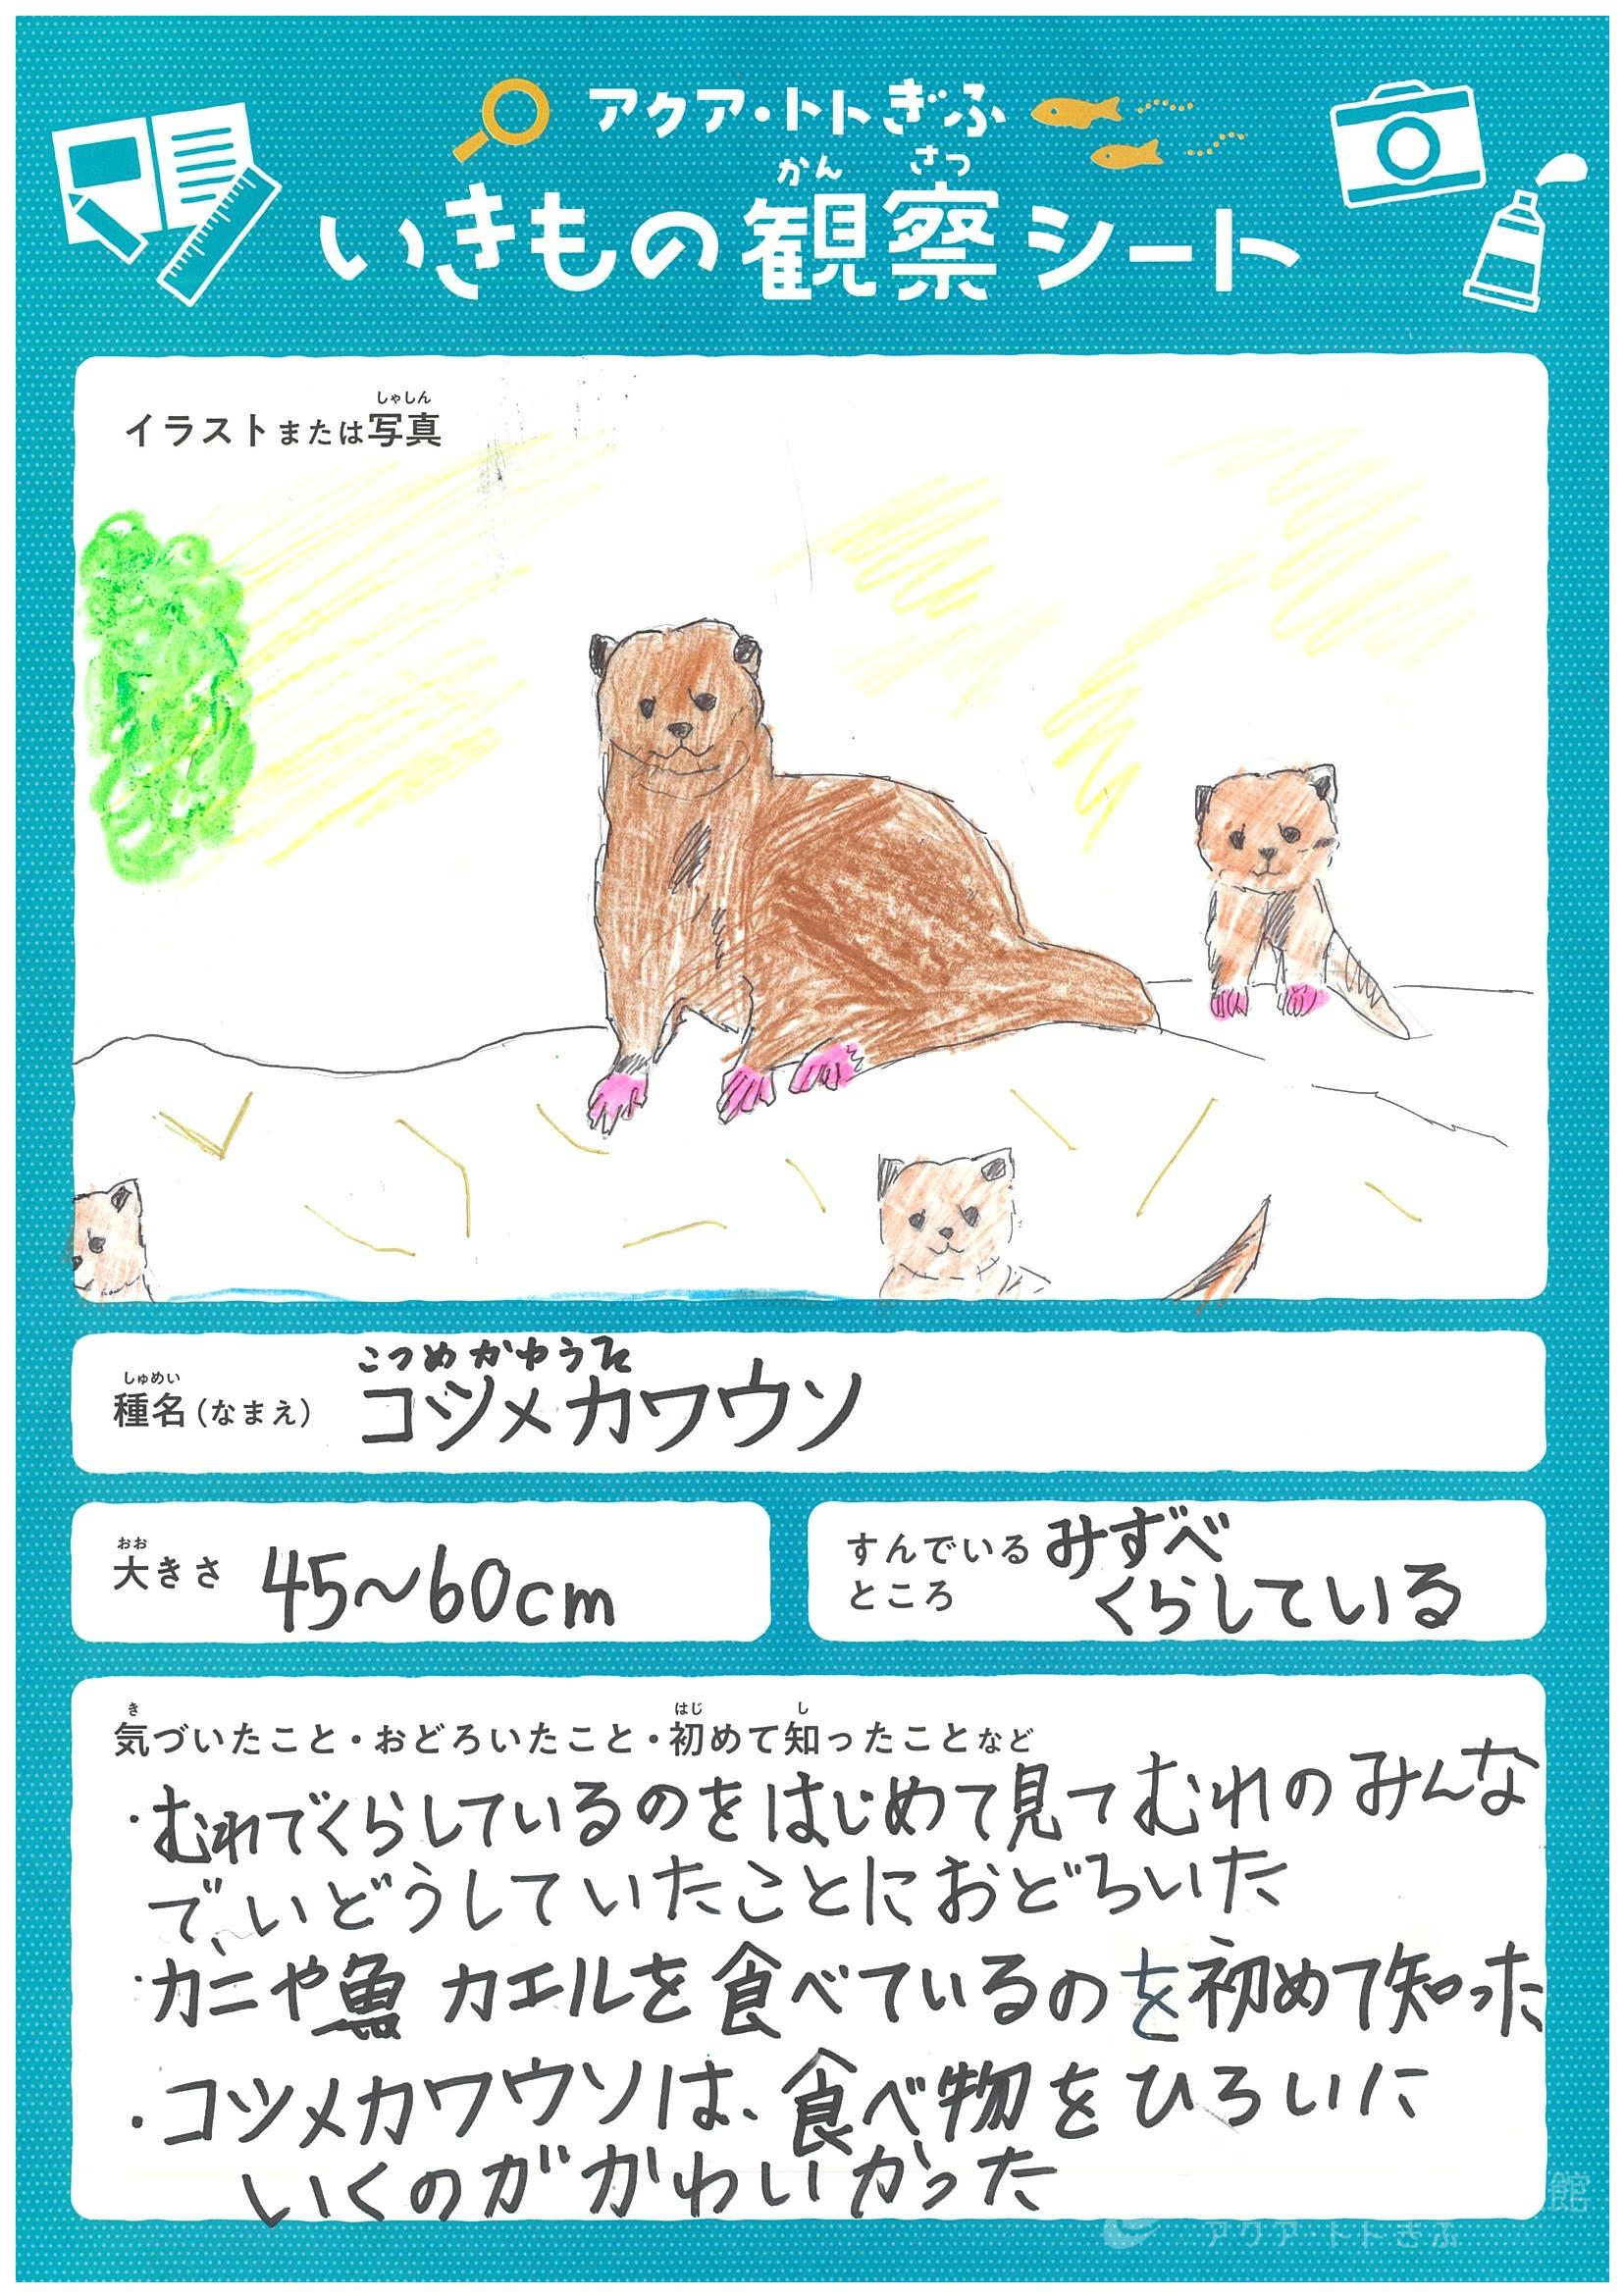 アクア・トトぎふ
かん さつ
いきもの観察シート
しゃしん
イラストまたは写真
こつめかわうそ
しゅめい
種名(なまえ) コツメカワウソ
おお
大きさ 45～60cm
すんでいる みずべ
ところ くらしている
き はじ し
気づいたこと・おどろいたこと・初めて知ったことなど
・むれでくらしているのをはじめて見てむれのみんな
でいどうしていたことにおどろいた
・カニや魚 カエルを食べているのを初めて知った
・コツメカワウソは、食べ物をひろいに
いくのがかわいかった
館
アクア・トトぎふ